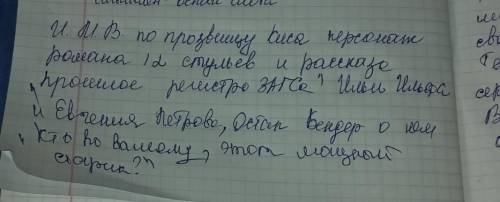 И. М В по прозвищу Киса персонаж
романа 12 стульев и рассказа
„Прошлое регистра ЗАГСа" Ильи Ильфа
и Евгения Петрова, Остап Бендер о нем
„Кто по вашему, этот мощный
старик?"